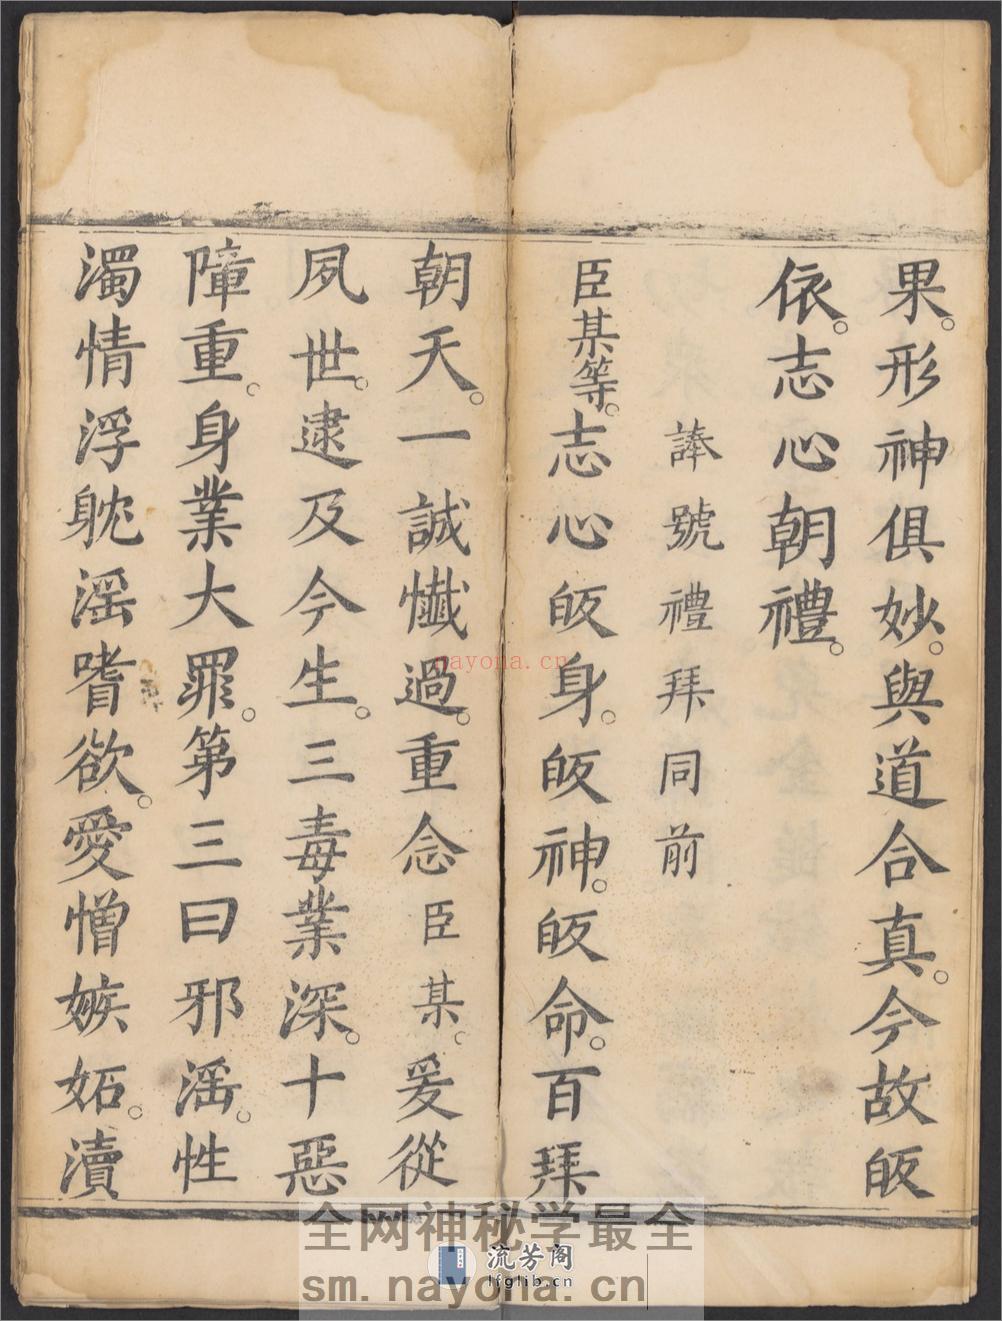 果。形神俱妙。與道合真。今故皈
依。志心朝禮。
諱號禮拜同前
臣某等。志心皈身。皈神。皈命。百拜
朝天。一誠懺過。重念臣某。爰從
夙世。逮及今生。三毒業深。十惡
障重。身業大罪。第三曰邪滛。性
濁情浮。躭滛嗜欲。愛憎嫉妬。瀆
nayona.cn
全网神秘学最全
流芳阁
lfglib.cn
sm.nayona.cn